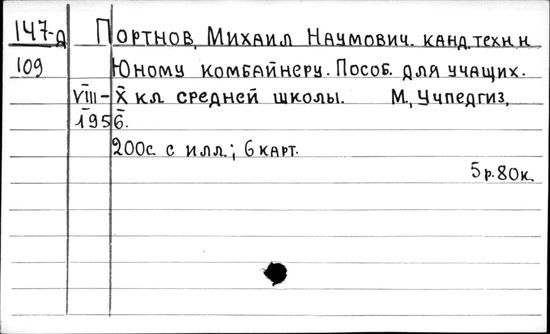 147-д Портнов, Михаил Наумович. канд. техн. н
109 Юному комбайнеру. Пособ. для учащих.
VIII-X кл средней школы. М, Учпедгиз,
1956.
200с. с илл.; 6 карт.
5р.80к.